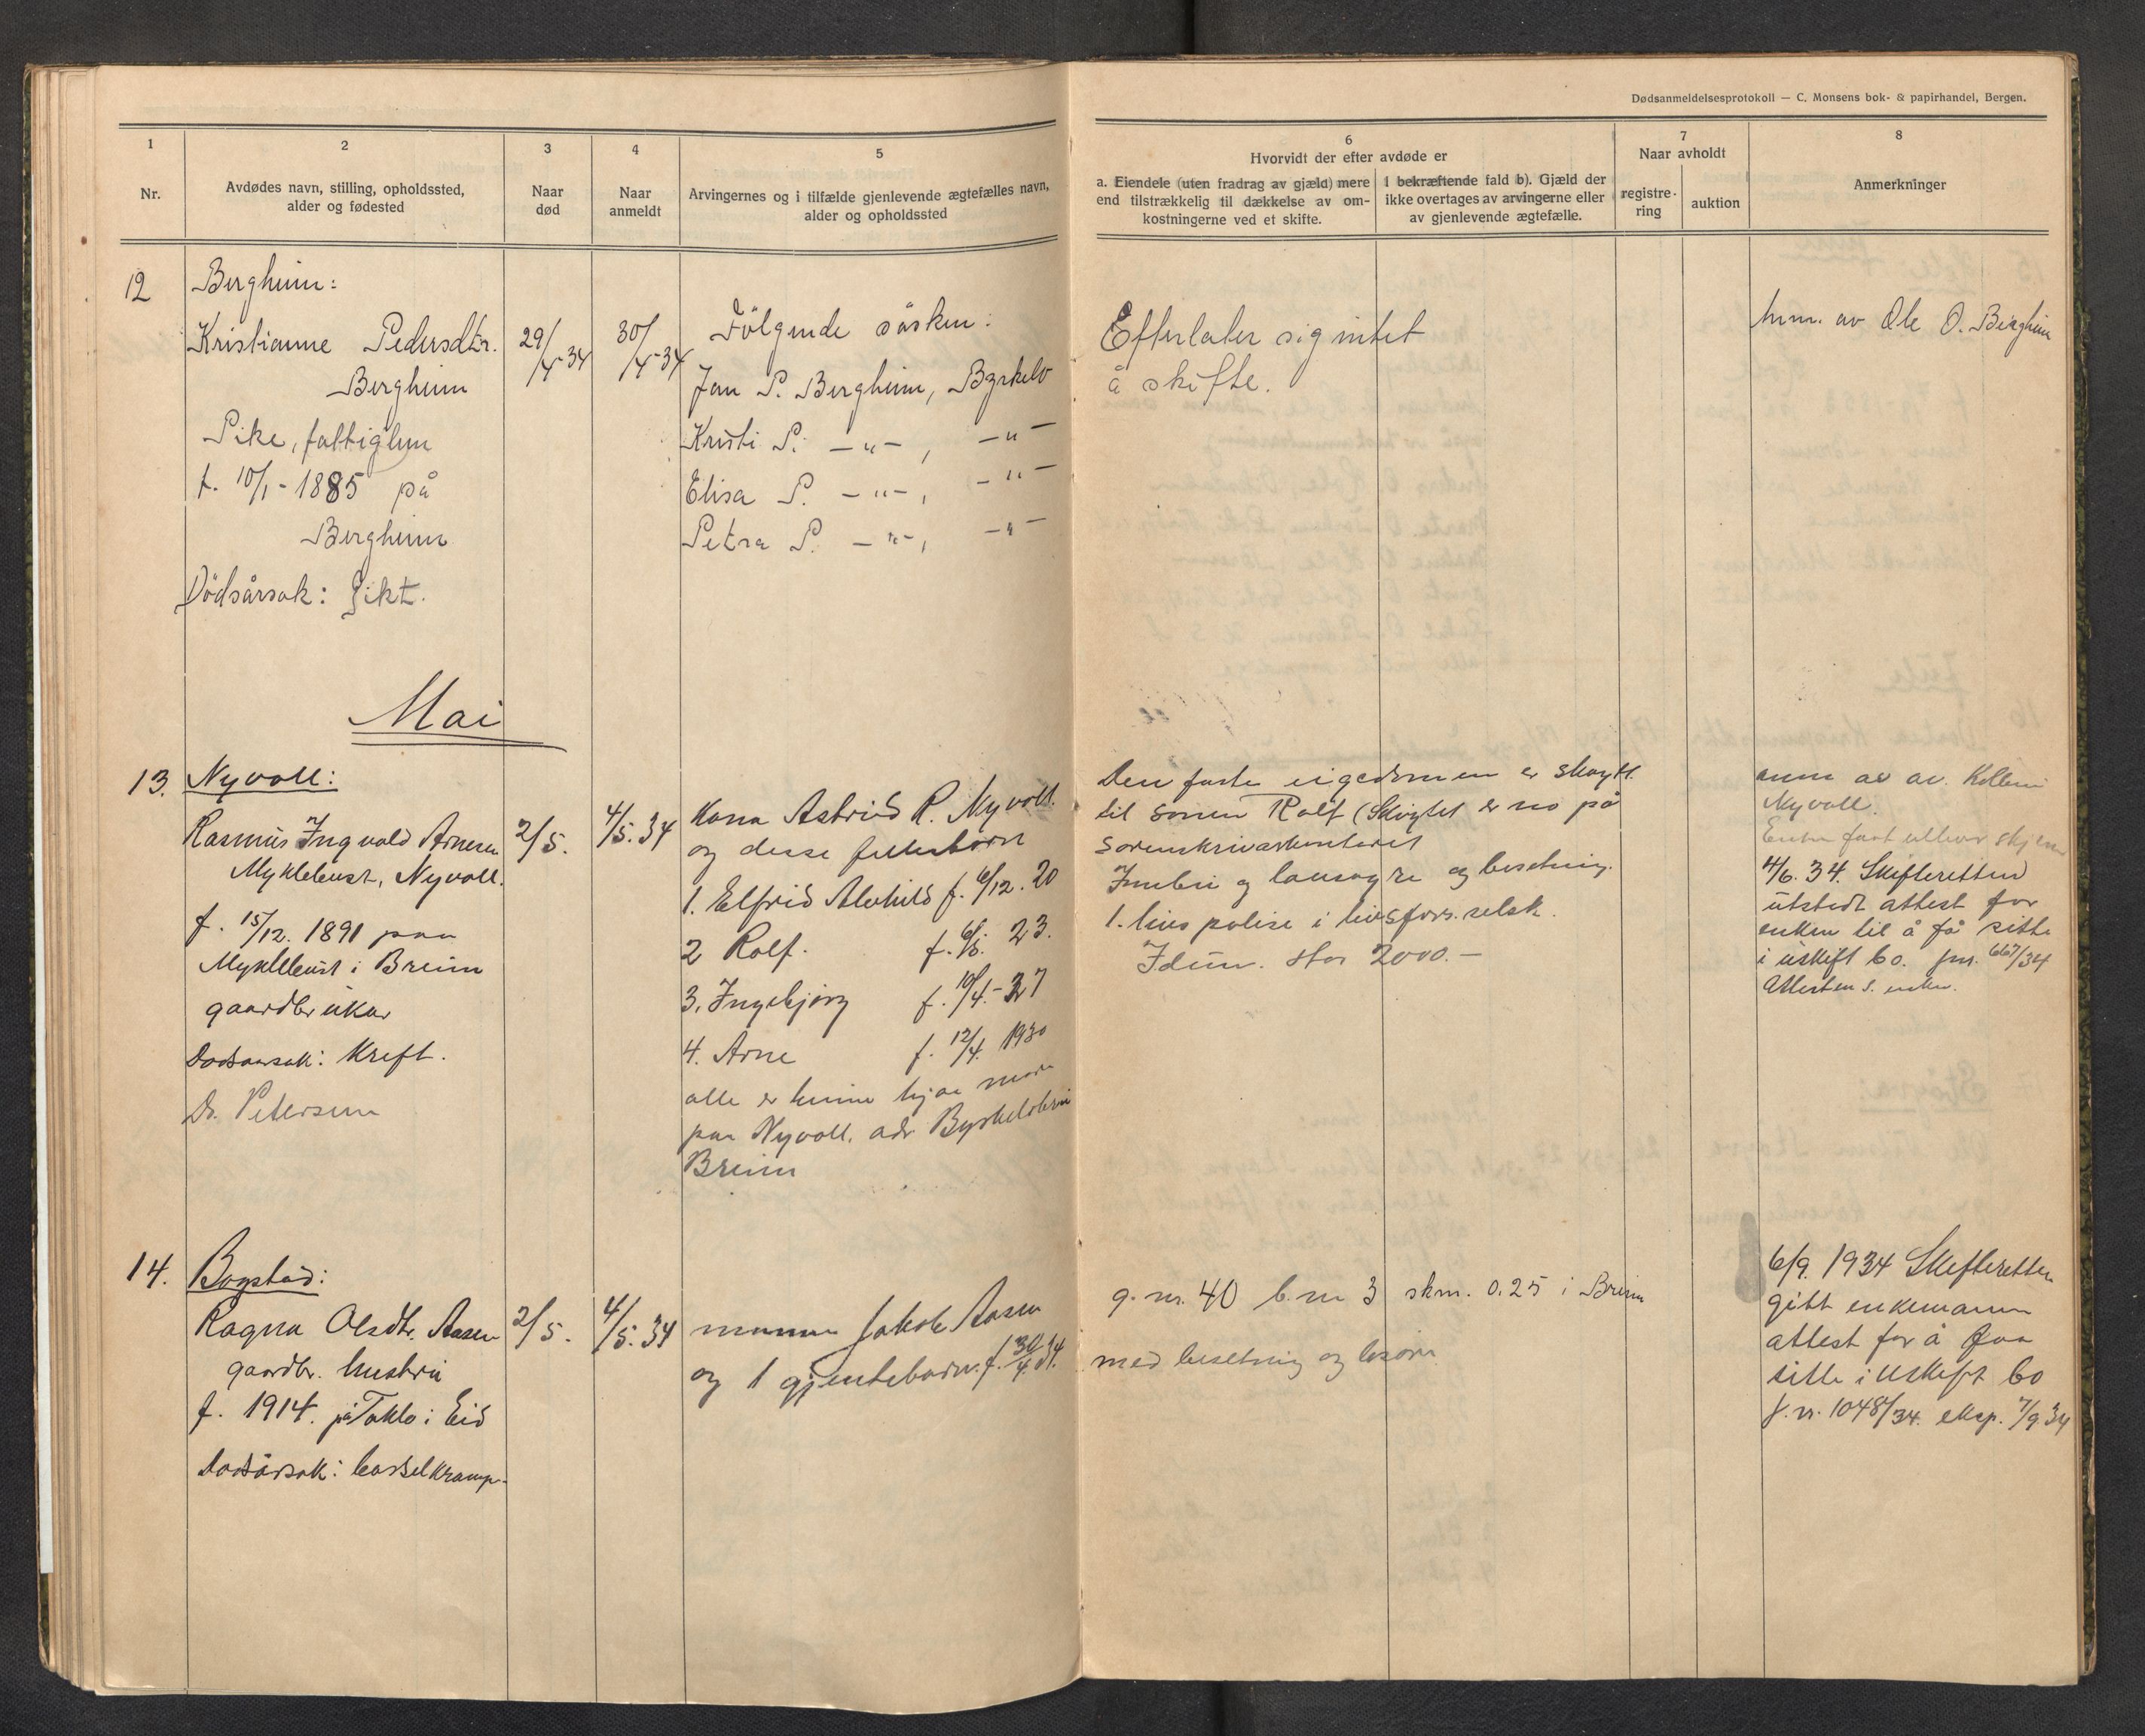 Dødsanmeldelsesprotokoll — C. Monsens bok- & papirhandel, Bergen.
1
2
3
4
5
6
7
8
Nr.
Avdødes navn, stilling, opholdssted,
alder og fødested
Naar
død
Naar
anmeldt
Arvingernes og i tilfælde gjenlevende ægtefælles navn,
alder og opholdssted
Hvorvidt der efter avdøde er
a. Eiendele (uten fradrag av gjæld) mere
end tilstrækkelig til dækkelse av om-
kostningerne ved et skifte.
I bekræftende fald b). Gjæld der
ikke overtages av arvingerne eller
av gjenlevende ægtefælle.
Naar avholdt
registre-
ring
auktion
Anmerkninger
12
Bergheim:
Kristianne Pedersdtr.
Bergheim
Pike, fattiglem
f. 10/1 - 1885 på
Bergheim
Dödsårsak: Gikt.
29/4-34
30/4-34
Fölgende sösken:
Jan P. Bergheim, Byrkelo
Kristi P. -"-, -"-
Elisa P. -"-, -"-
Petra P. -"-, -"-
Efterlater sig intet
å skifte.
av Ole O. Bergheim
Mai
13.
Nyvoll:
Rasmus Ingvald Arnesen
Myklebust, Nyvoll.
f. 15/12. 1891 paa
Myklebust i Breim
gaardbrukar
Dødsaarsak: Kreft.
Dr. Petersen
2/5.
4/5.34
Kona Astrid R. Nyvoll.
og desse fellesborn
1. Elfrid Alvhild f. 6/12. 20
2 Rolf. f. 23.
3. Ingebjørg f. 10/4.-27
4. Arne f. 12/4. 1930
alle er heime hjaa mora
paa Nyvoll. adr. Byrkelo
Breim
Den faste eigedomen er skøytt
til sonen Rolf (Skøytet er no på
sorenskrivarkontoret
Innbu og lausøyre og besetning.
1. livspolise i livsfors.selsk.
Idun. stor 2000.-
av
Nyvoll.
Enka faat skjema
4/6. 34. Skifteretten
utstedt attest for
enken til å få sitte
i uskift bo. jnr. 667/34
Attesten s. enken.
14.
Bogstad:
Ragna Olsdtr. Aasen
gaardbr. hustru
f. 1914. på Taklo i Eid
Dødsårsak: barselkrampe
2/5.
4/5.34
mannen Jakob Aasen
og 1 gjentebarn. f. 30/4.34.
g. nr. 40 b. nr 3 skm. 0.25 i Breim
med besetning og løsøre
6/9. 1934 Skifteretten
gitt enkemannen
attest for å faa
sitte i uskift bo
J. nr. 1048/34. eksp. 7/9 34